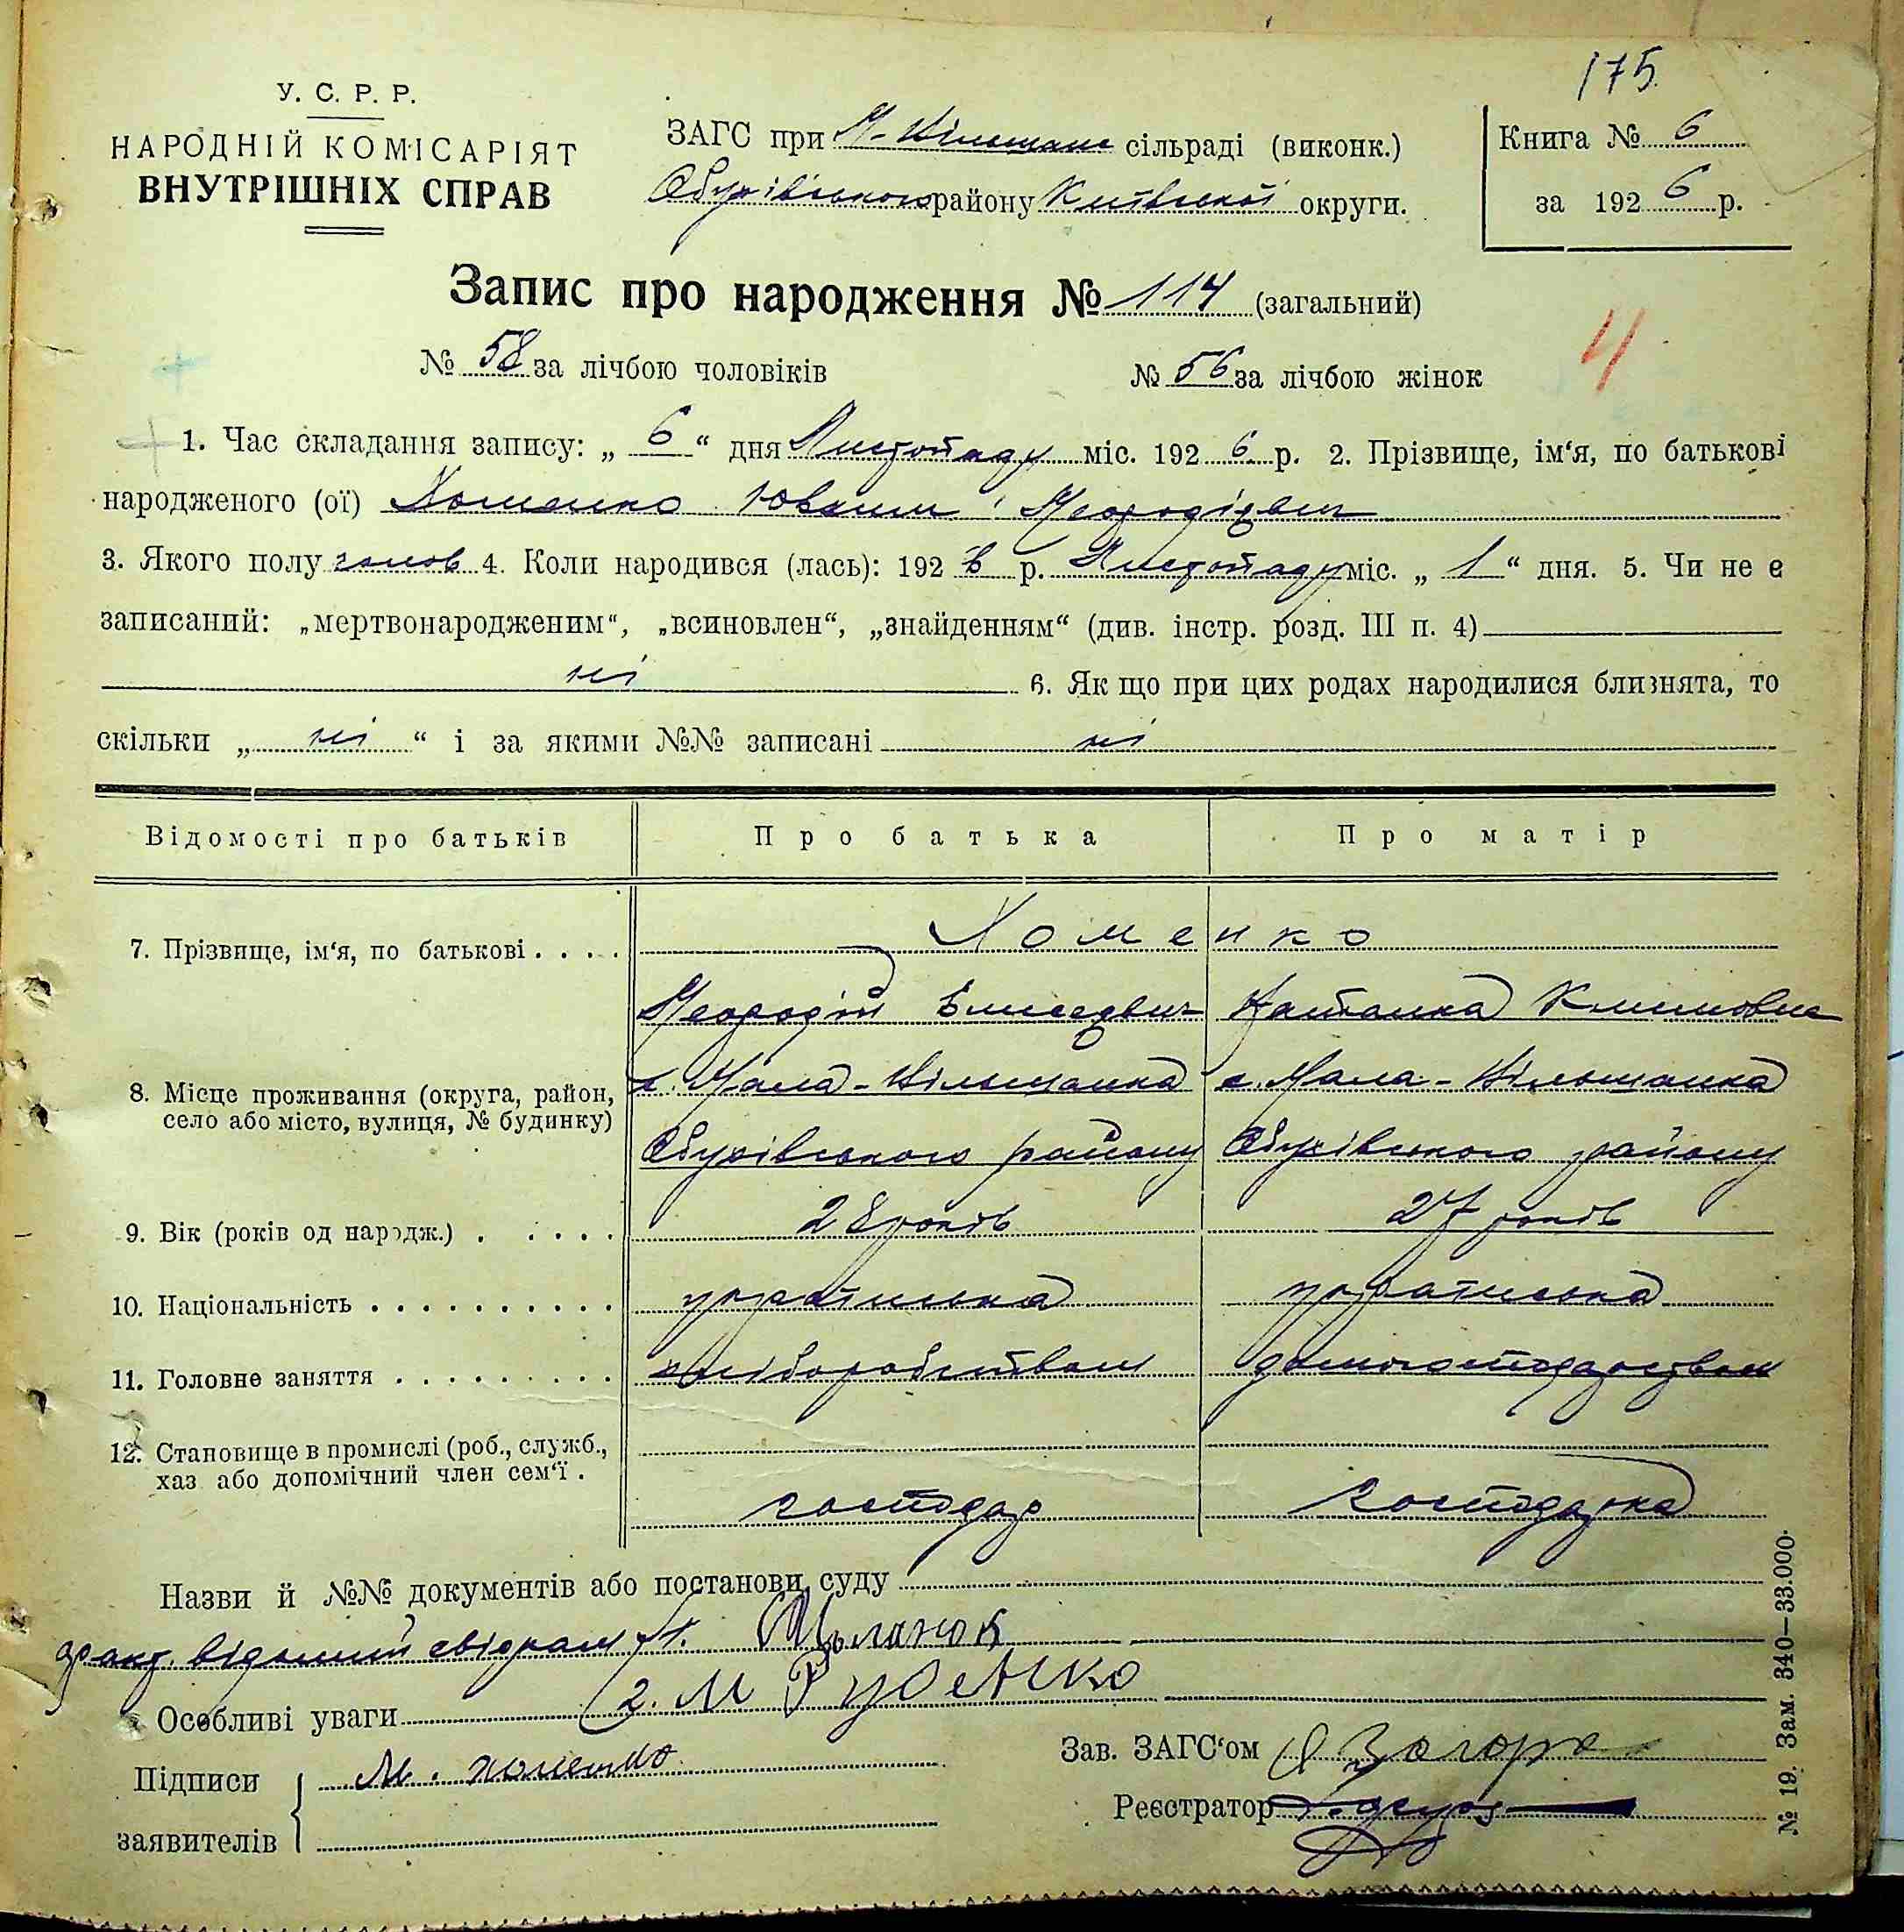 175.
У. С. Р. Р.
НАРОДНІЙ КОМІСАРІЯТ
ВНУТРІШНІХ СПРАВ
ЗАГС при М-Вільшанс сільраді (виконк.)
Обухівського району Київської округи.
Книга № 6
за 1926 р.
Запис про народження № 114 (загальний)
№ 58 за лічбою чоловіків № 56 за лічбою жінок
4
1. Час складання запису: „ 6 “ дня Листопаду міс. 1926 р. 2. Прізвище, ім‘я, по батькові
народженого (ої) Хоменко
3. Якого полу чолов 4. Коли народився (лась): 1926 р. Листопаду міс. „ 1 “ дня. 5. Чи не є
записаний: „мертвонародженим“, „всиновлен“, „знайденням“ (див. інстр. розд. III п. 4)
ні 6. Як що при цих родах народилися близнята, то
скільки „ ні “ і за якими №№ записані ні
Відомості про батьків Про батька Про матір
7. Прізвище, ім‘я, по батькові . . . . Хоменко
Елисеевич
8. Місце проживання (округа, район, с. Мала-Вільшанка с. Мала-Вільшанка
село або місто, вулиця, № будинку) Обухівського району Обухівського району
9. Вік (років од народж.) . . . . . 28 років 27 років
10. Національність . . . . . . . . . . українська українська
11. Головне заняття . . . . . . . . . хліборобством домогосподарством
12. Становище в промислі (роб., служб.,
хаз або допомічний член сем‘ї . господар господарка
Назви й №№ документів або постанови суду
факт. відомий свідкам 1.
2. М Руденко
Особливі уваги
Підписи М. хоменко
заявителів
Зав. ЗАГС‘ом
Реєстратор
№ 19. Зам. 340—33.000.